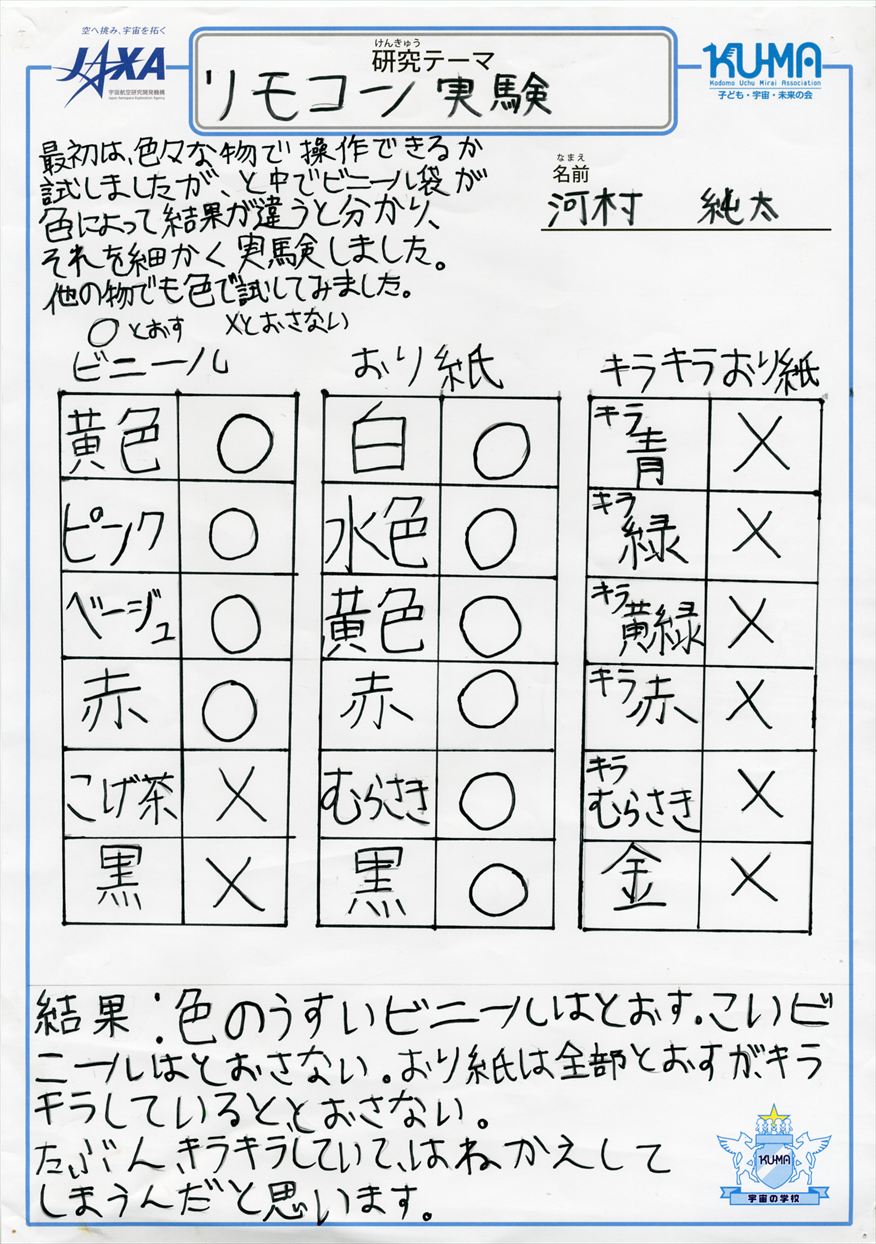 空へ挑み、宇宙を拓く
JAXA
宇宙航空研究開発機構
Japan Aerospace Exploration Agency
けんきゅう
研究テーマ
リモコン実験
KU-MA
Kodomo Uchu Mirai Association
子ども・宇宙・未来の会
なまえ
名前
河村 純太
最初は、色々な物で操作できるか
試しましたが、と中でビニール袋が
色によって結果が違うと分かり、
それを細かく実験しました。
他の物でも色で試してみました。
○とおす ×とおさない
ビニール
黄色 ○
ピンク ○
ベージュ ○
赤 ○
こげ茶 ×
黒 ×
おり紙
白 ○
水色 ○
黄色 ○
赤 ○
むらさき ○
黒 ○
キラキラおり紙
キラ青 ×
キラ緑 ×
キラ黄緑 ×
キラ赤 ×
キラむらさき ×
金 ×
結果:色のうすいビニールはとおす。こいビ
ニールはとおさない。おり紙は全部とおすが、キラ
キラしていると、とおさない。
たぶん、キラキラしていて、はねかえして
しまうんだと思います。
KU-MA
宇宙の学校